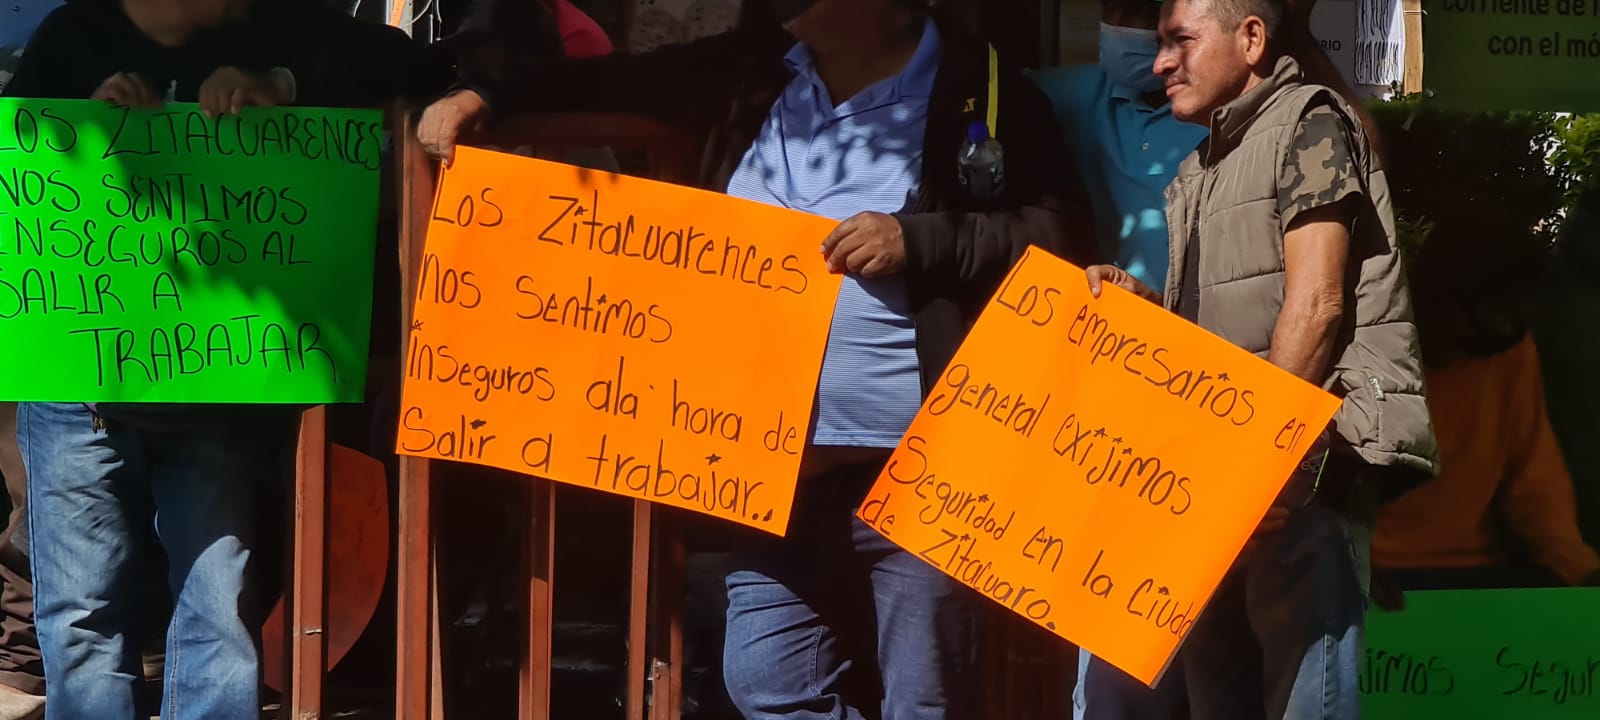 LOS ZITACUARENCES
NOS SENTIMOS
INSEGUROS AL
SALIR A
TRABAJAR.
Los Zitacuarences
nos sentimos
inseguros ala hora de
Salir a trabajar..
Los empresarios en
general exijimos
Seguridad en la Ciuda
de Zitacuaro.
corriente de
con el mó
RIO
jimos Segur